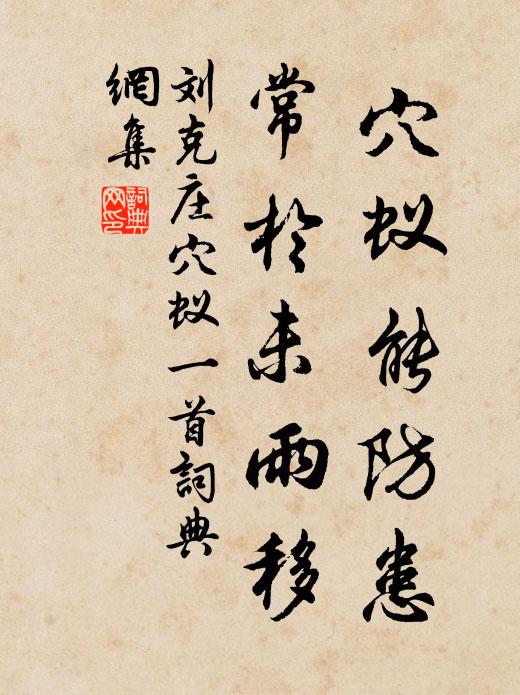 穴蚁能防患
常於未雨移
刘克庄穴蚁一首詞典
網集
詞典网印